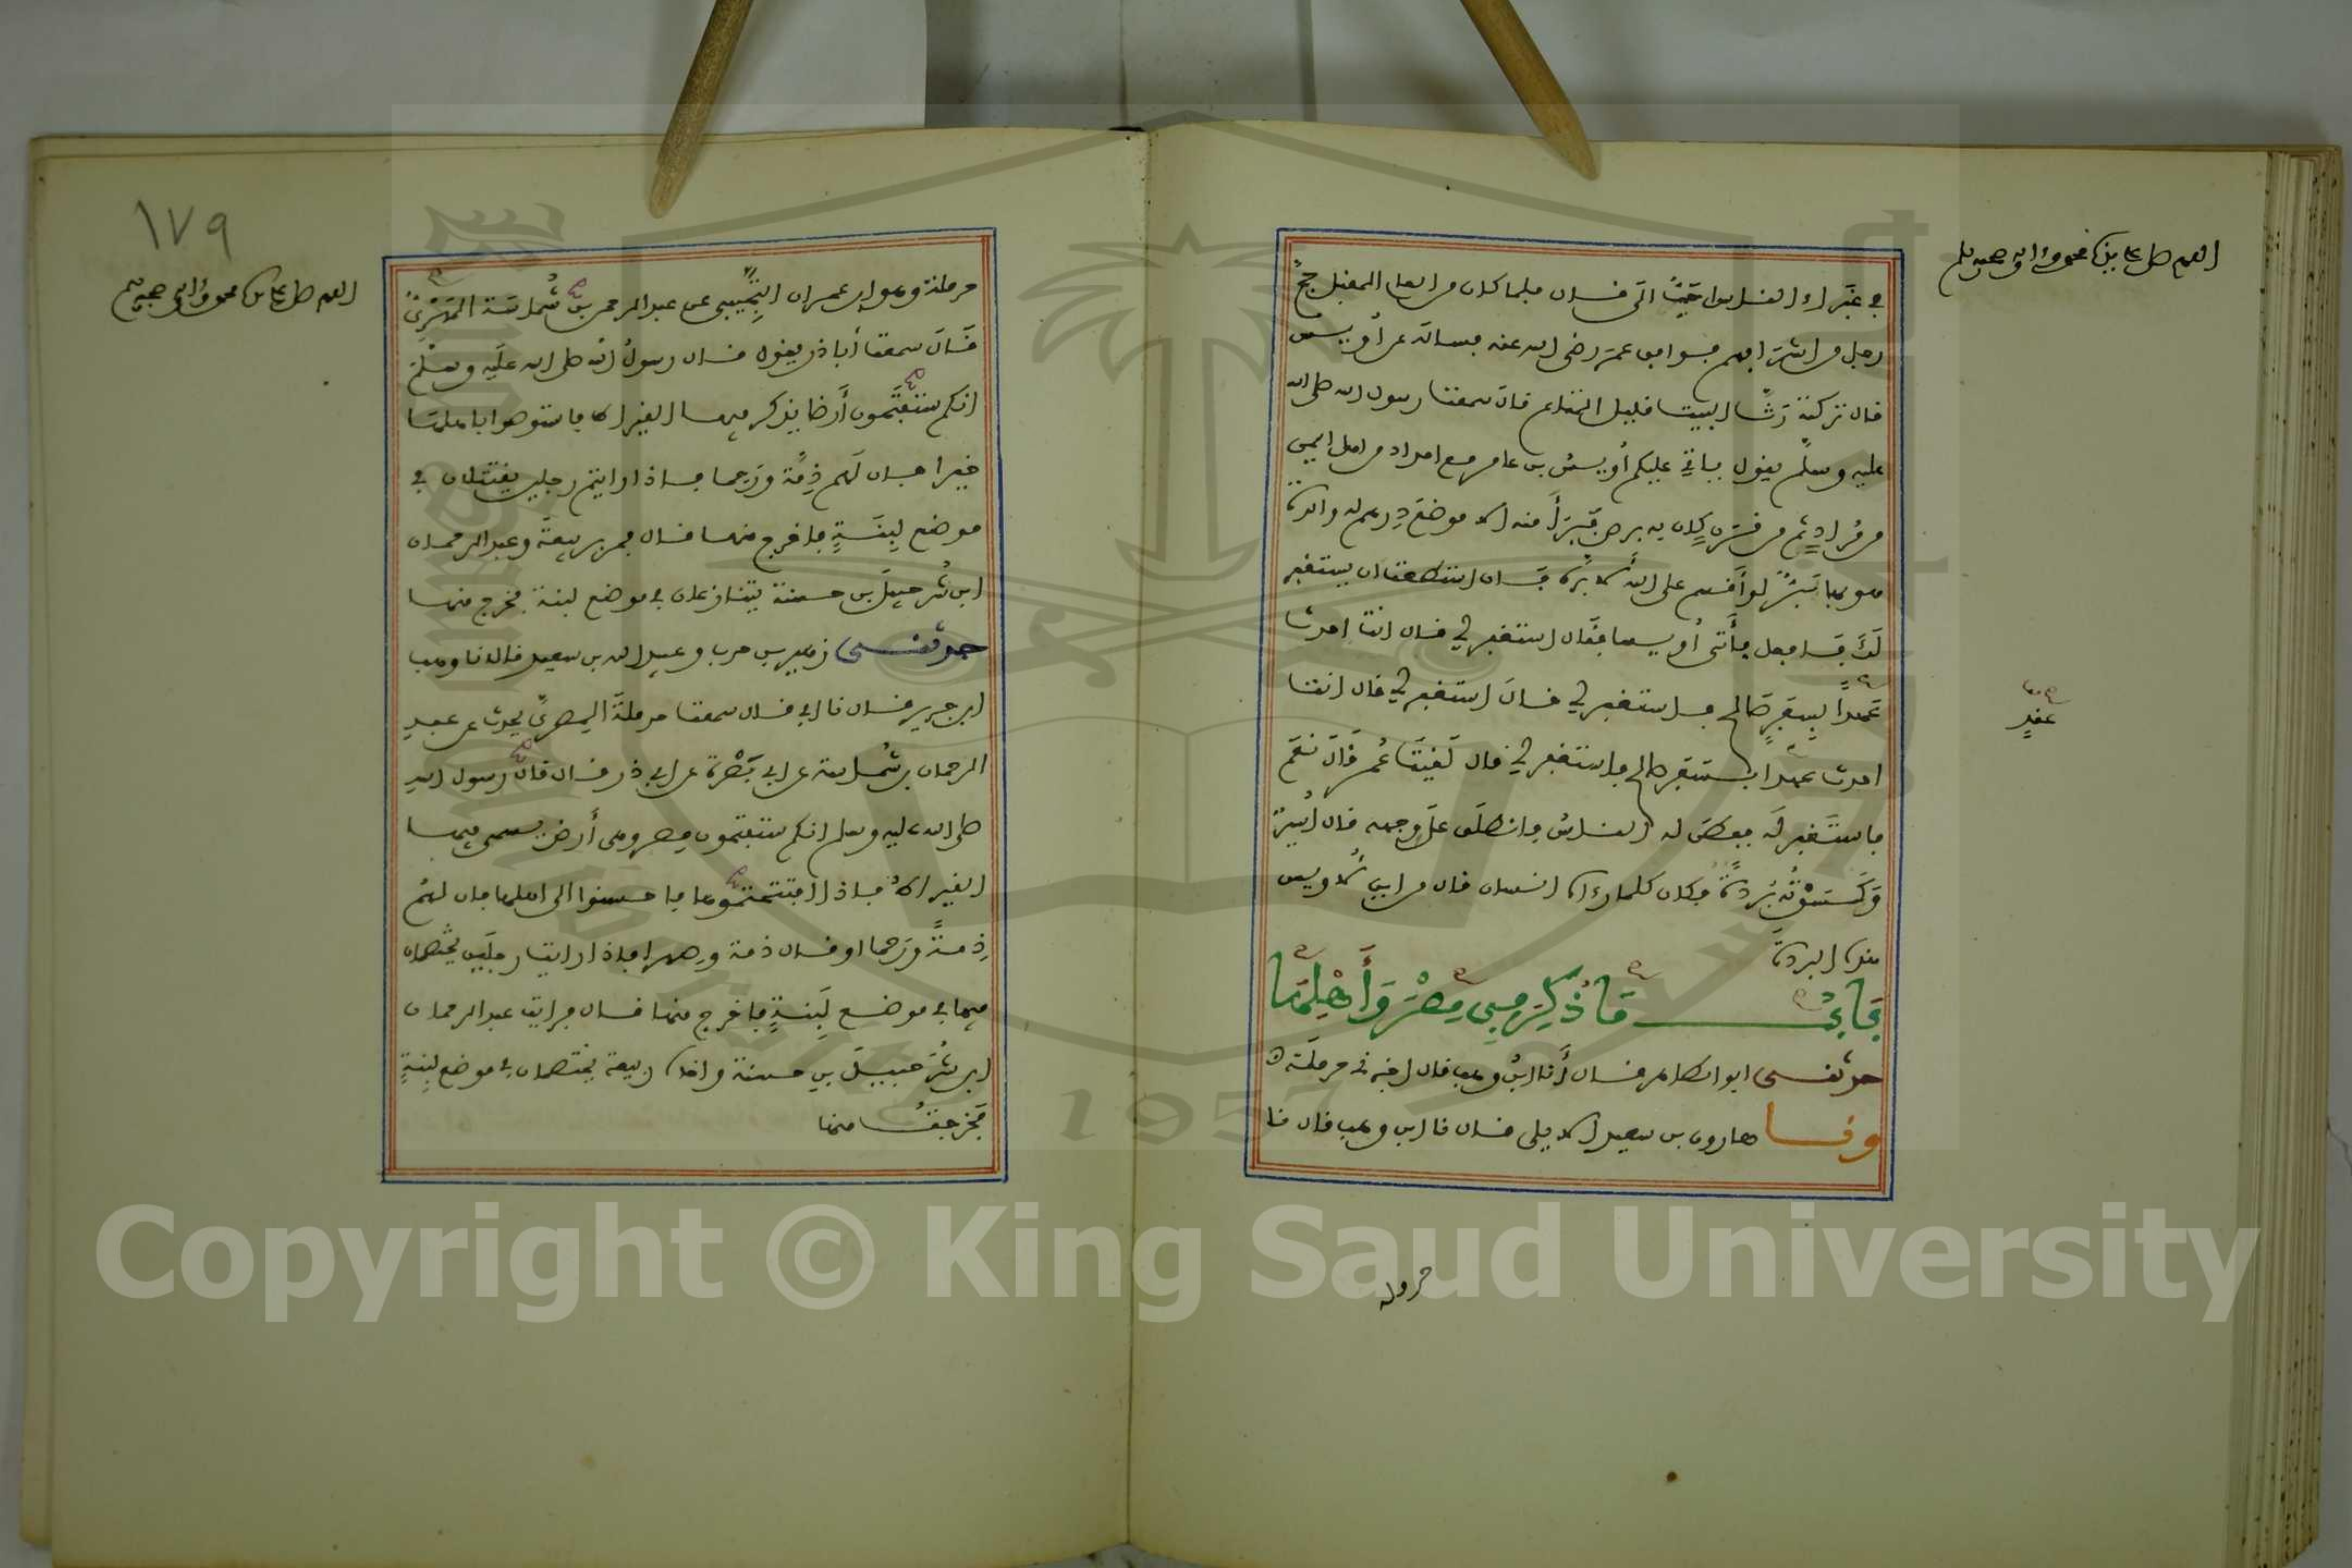 اللهم صل على سيدنا محمد وءاله وصحبه وسلم
في غبراء الناس احب الى قال فلما كان من العام المقبل حج
رجل من اشرافهم فوافق عمر رضى الله عنه فساله عن أويس
قال تركته رث البيت قليل المتاع قال سمعت رسول الله صلى الله
عليه وسلم يقول ياتي عليكم أويس بن عامر مع امداد من اهل اليمن
من مراد ثم من قرن كان به برص فبرأ منه الا موضع درهم له والدة
هو بها بر لو أقسم على الله لابره فان استطعت ان يستغفر
لك فافعل فأتى أويسا فقال استغفر لي قال انت احدث
عهدا بسفر صالح فاستغفر لي قال استغفر لي قال انت
احدث عهدا بسفر صالح فاستغفر لي قال لقيت عمر قال نعم
فاستغفر له ففطن له الناس فانطلق على وجهه قال أسير
وكسوته بردة فكان كلما رءاه انسان قال من اين لاويس
هذه البردة
باب ما ذكر في مصر وأهلها
حدثني ابو الطاهر قال أنا ابن وهب قال اخبرني حرملة ح
ونا هارون بن سعيد الايلي قال نا ابن وهب قال نا
١٧٩
اللهم صل على سيدنا محمد وءاله وصحبه وسلم
حرملة وهو ابن عمران التجيبي عن عبد الرحمن بن شماسة المهري
قال سمعت أبا ذر يقول قال رسول الله صلى الله عليه وسلم
انكم ستفتحون أرضا يذكر فيها القيراط فاستوصوا باهلها
خيرا فان لهم ذمة ورحما فاذا رايتم رجلين يقتتلان في
موضع لبنة فاخرج منها قال فمر بربيعة وعبد الرحمان
ابن شرحبيل بن حسنة يتنازعان في موضع لبنة فخرج منها
حدثني زهير بن حرب وعبيد الله بن سعيد قالا نا وهب
ابن جرير قال نا ابي قال سمعت حرملة المصري يحدث عن عبد
الرحمان بن شماسة عن ابي بصرة عن ابي ذر قال قال رسول الله
صلى الله عليه وسلم انكم ستفتحون مصر وهى أرض يسمى فيها
القيراط فاذا افتتحتموها فاحسنوا الى اهلها فان لهم
ذمة ورحما او قال ذمة وصهرا فاذا رايت رجلين يختصمان
فيها في موضع لبنة فاخرج منها قال فرايت عبد الرحمان
ابن شرحبيل بن حسنة واخاه ربيعة يختصمان في موضع لبنة
فخرجت منها
Copyright © King Saud University
1957